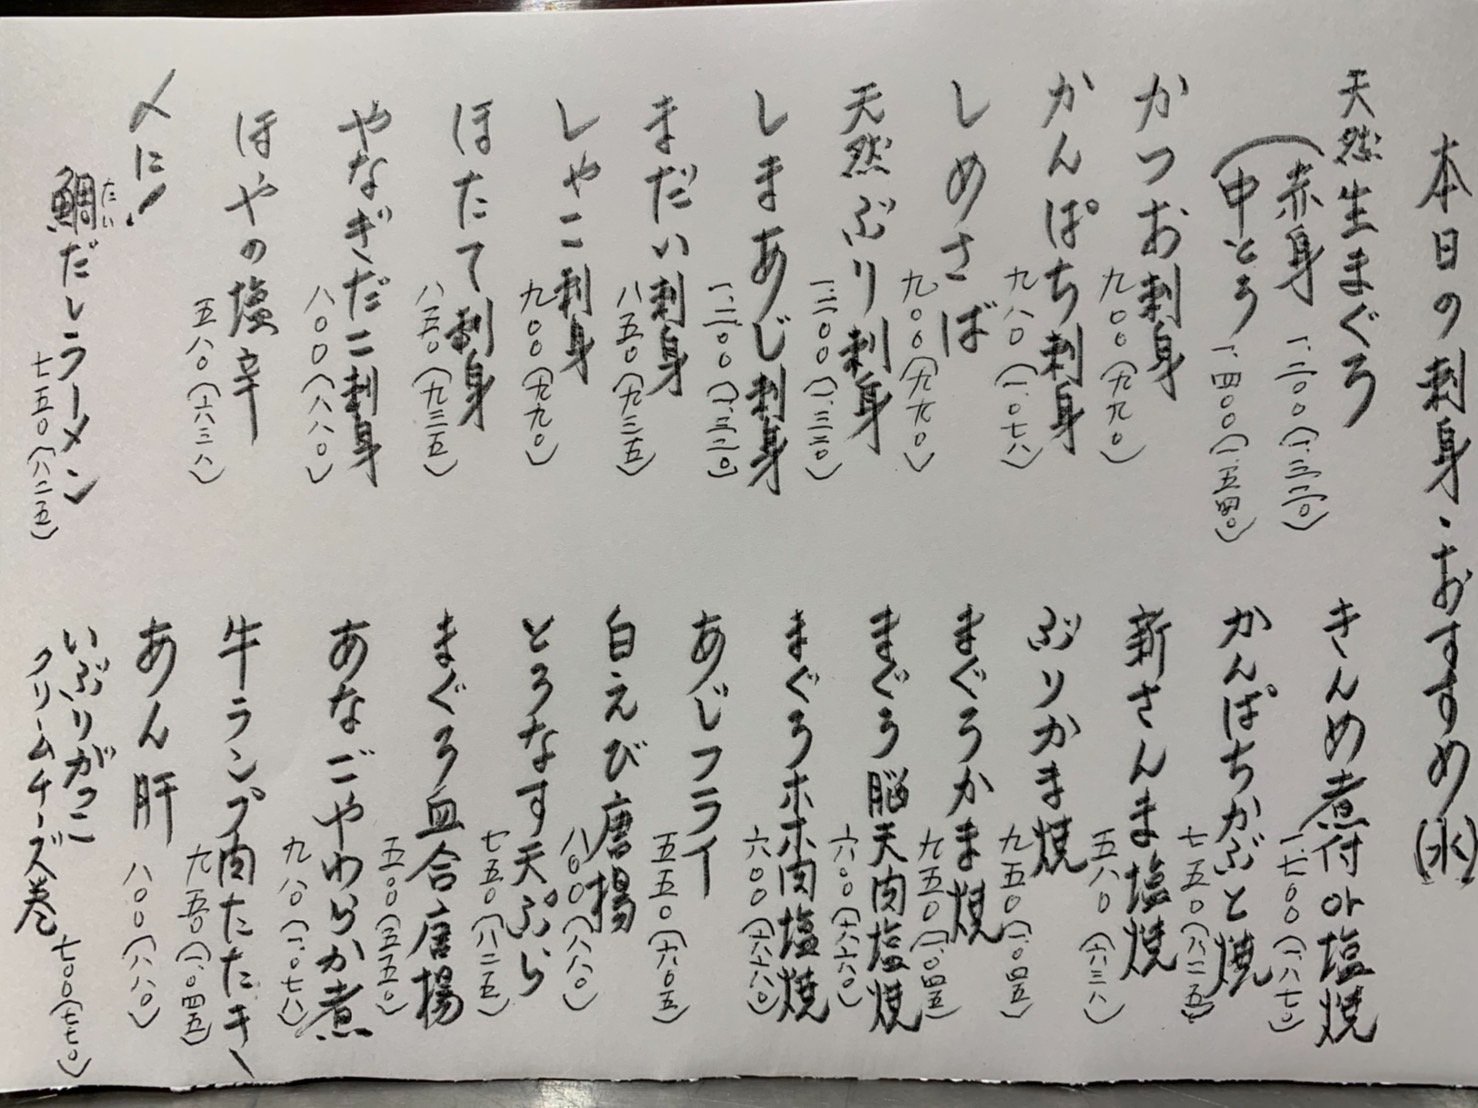 本日の刺身・おすすめ(水)
天然生まぐろ
赤身 一、二〇〇(一、三二〇)
中とろ 一、四〇〇(一、五四〇)
かつお刺身 九〇〇(九九〇)
かんぱち刺身 九八〇(一、〇七八)
しめさば 九〇〇(九九〇)
天然ぶり刺身 一、二〇〇(一、三二〇)
しまあじ刺身 一、二〇〇(一、三二〇)
まだい刺身 八五〇(九三五)
しゃこ刺身 九〇〇(九九〇)
ほたて刺身 八五〇(九三五)
やなぎだこ刺身 八〇〇(八八〇)
ほやの塩辛 五八〇(六三八)
〆に!
鯛だしラーメン 七五〇(八二五)
たい
きんめ煮付or塩焼 一、七〇〇(一、八七〇)
かんぱちかぶと焼 七五〇(八二五)
新さんま塩焼 五八〇(六三八)
ぶりかま焼 九五〇(一、〇四五)
まぐろかま焼 九五〇(一、〇四五)
まぐろ脳天肉塩焼 六〇〇(六六〇)
まぐろホホ肉塩焼 六〇〇(六六〇)
あじフライ 五五〇(六〇五)
白えび唐揚 八〇〇(八八〇)
とろなす天ぷら 七五〇(八二五)
まぐろ血合唐揚 五〇〇(五五〇)
あなごやわらか煮 九八〇(一、〇七八)
牛ランプ肉たたき 九五〇(一、〇四五)
あん肝 八〇〇(八八〇)
いぶりがっこ
クリームチーズ巻 七〇〇(七七〇)